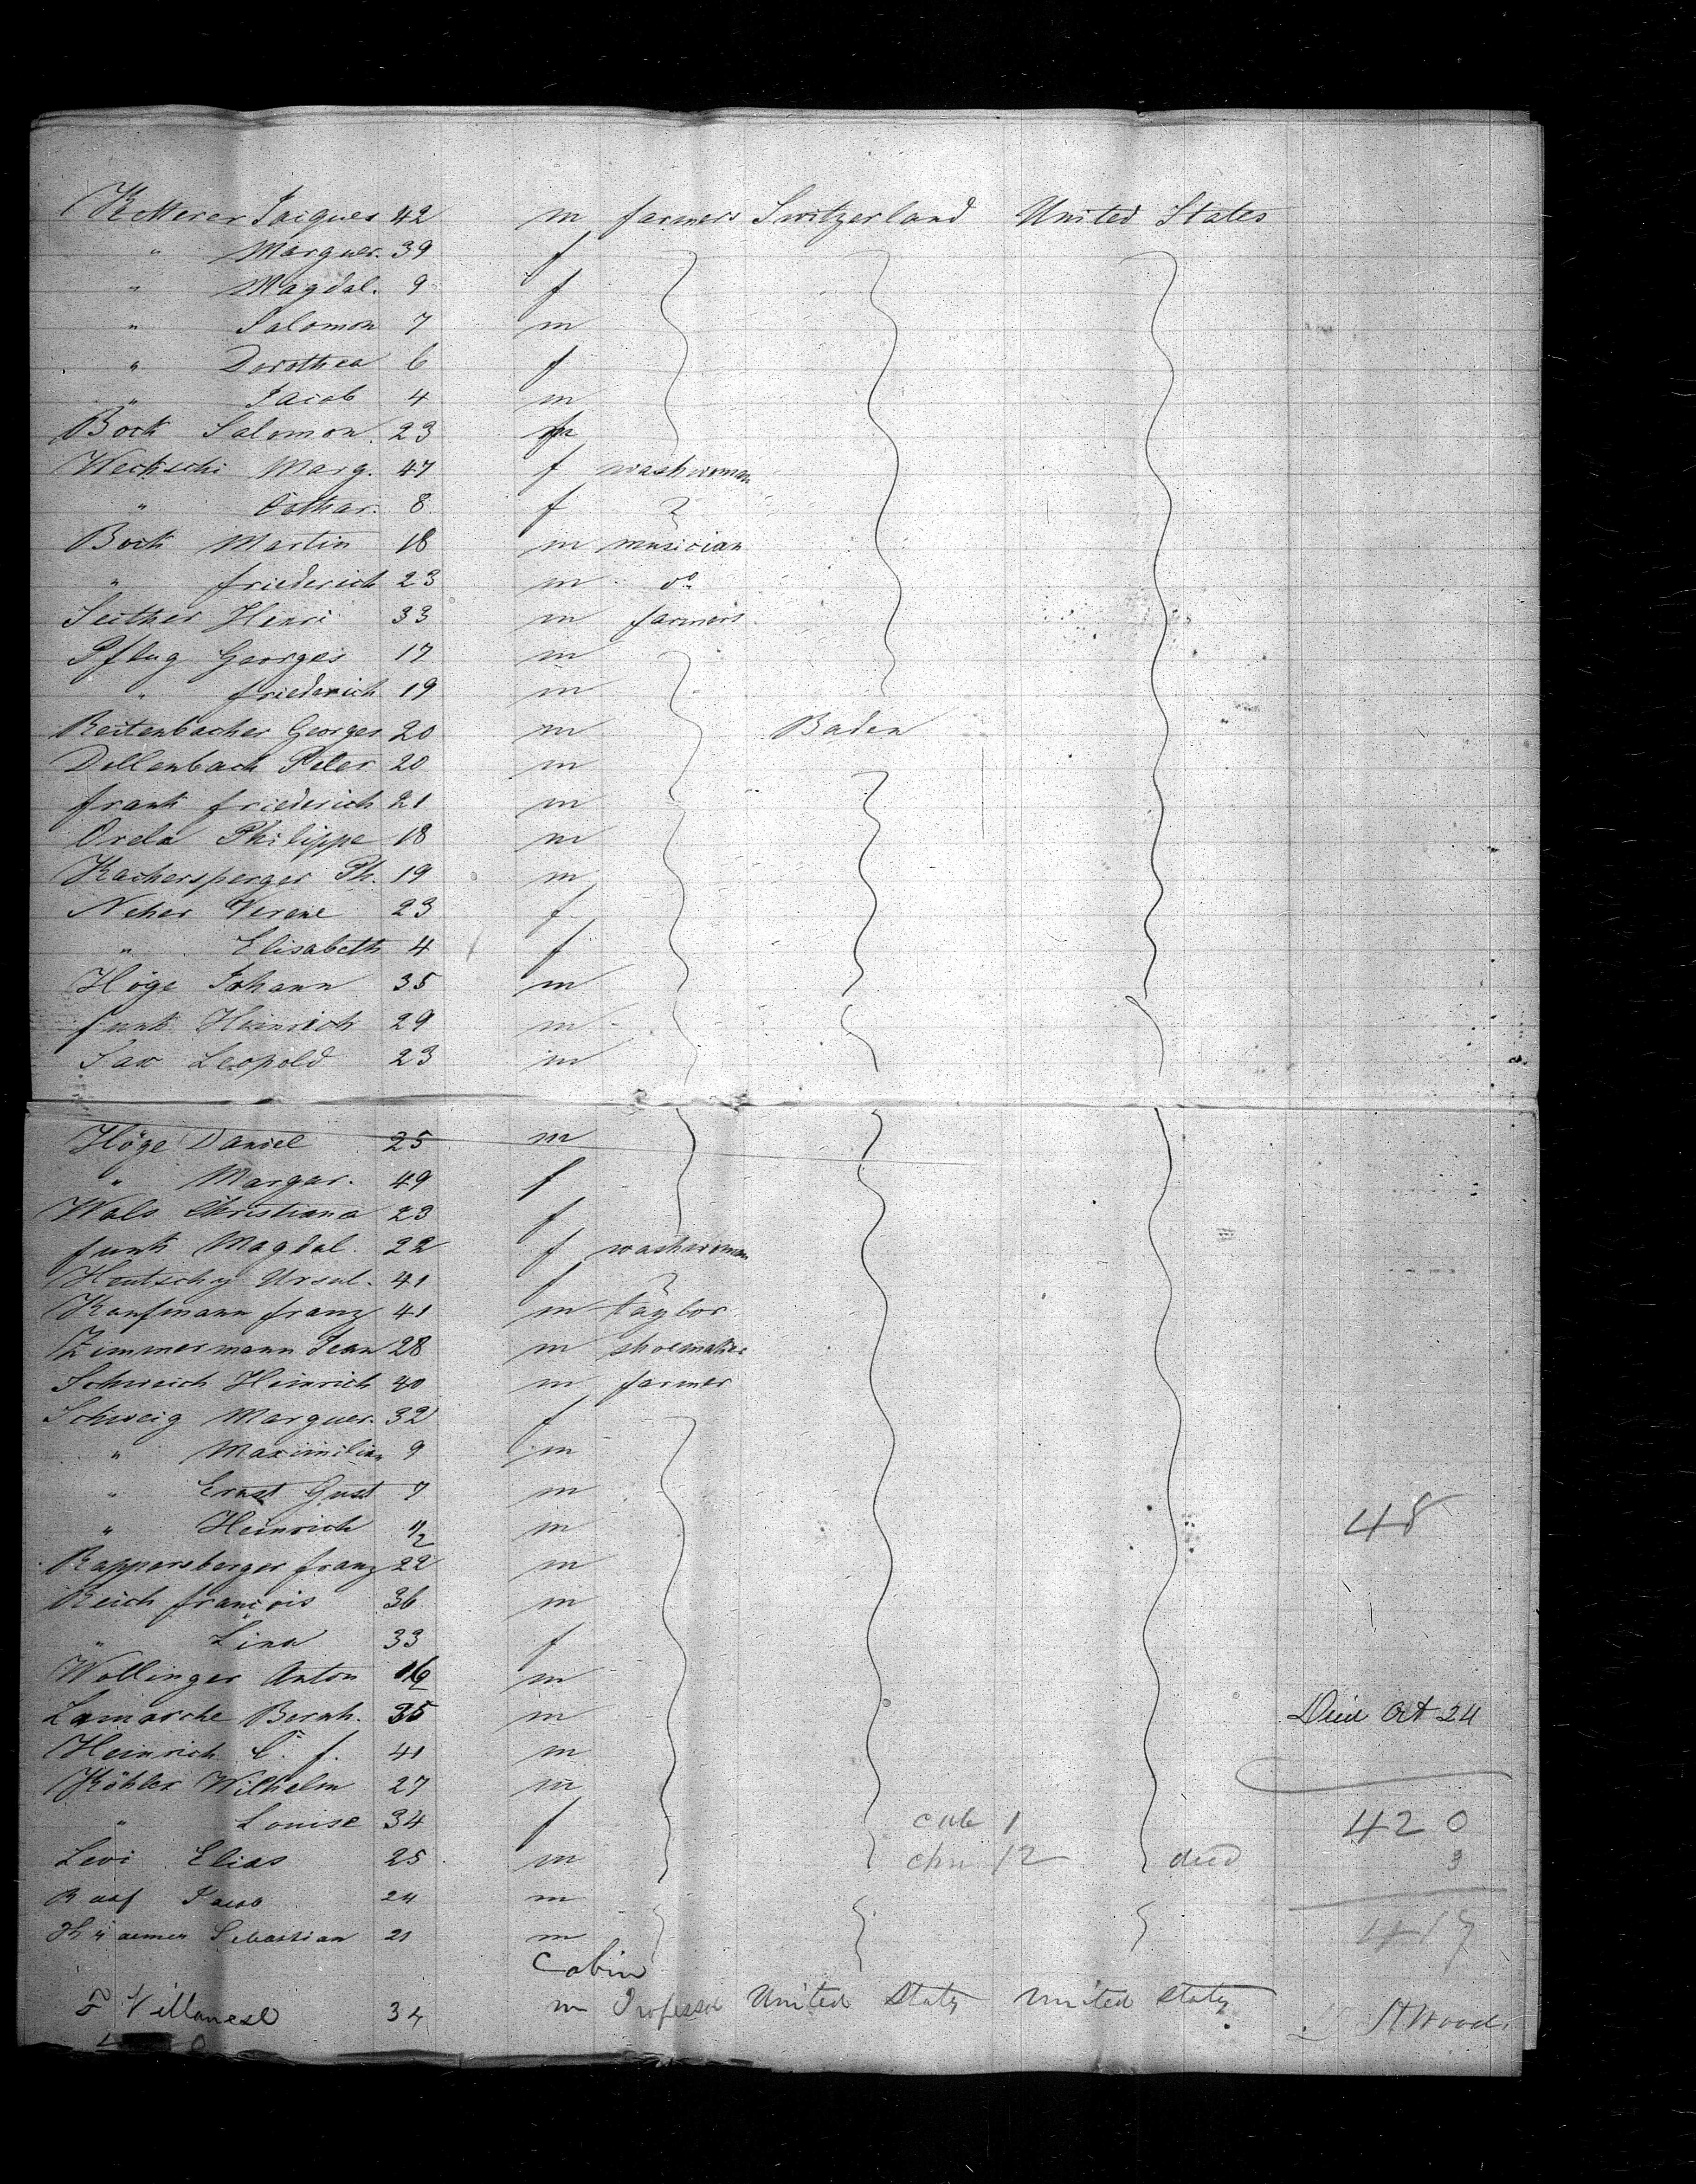 Ketterer Jacques 42 m farmers Switzerland United States
" Marguer. 39 f
" Magdal. 9 f
" Salomon 7 m
" Dorothea 6 f
" Jacob 4 m
Bock Salomon. 23 m
Weckschi Marg. 47 f washwoman
" Cathar. 8 f
Bock Martin 18 m musician
" friederich 23 m do
Seither Henri 33 m farmers
Pflug Georges 17 m
" friederich 19 m
Reitenbacher Georges 20 m Baden
Dellenbach Peter 20 m
frank friederich 21 m
Orela Philippe 18 m
Kachersperger Ph. 19 m
Neher Verene 23 f
" Elisabeth 4 f
Höge Johann 35 m
funk Heinrich 29 m
Sax Leopold 23 m
Höge Daniel 25 m
" Margar. 49 f
Wals Christiana 23 f
funk Magdal. 22 f washwoman
Hentschy Ursul. 41 f
Kaufmann franz 41 m taylor
Zimmermann Jean 28 m shoemaker
Schweich Heinrich 40 m farmer
Schweig Marguer. 32 f
" Maximilian 9 m
" Ernst Gust 7 m
" Heinrich 1/2 m 48
Rappersberger franz 22 m
Reich françois 36 m
" Lina 33 f
Wollinger Anton 16 m
Lamarche Bernh. 35 m Died Oct 24
Heinrich C. f. 41 m
Köhler Wilhelm 27 m
" Louise 34 f cab 1 420
Levi Elias 25 m 12 died 3
Raaf Jacob 24 m
Sebastian 21 m 417
Cabin
F Villanese 34 m Professor United States United States Wood